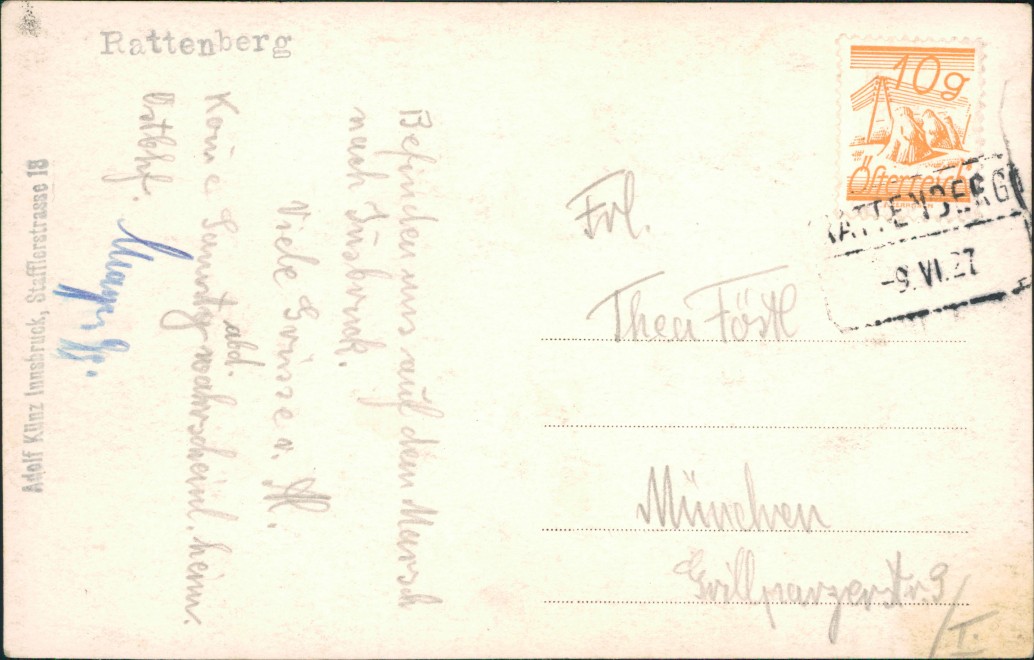 Rattenberg
10g
Österreich
RATTENBERG
-9.VI.27
Befinden uns auf dem Marsch
nach Insbruck.
Viele Grüsse v.
abd.
Kome Sonntag wahrscheinl. heim.
Ostbhf.
Adolf Künz Innsbruck, Stafflerstrasse 18
Frl.
Thea Föstl
München
Grillparzerstr. 9/I.